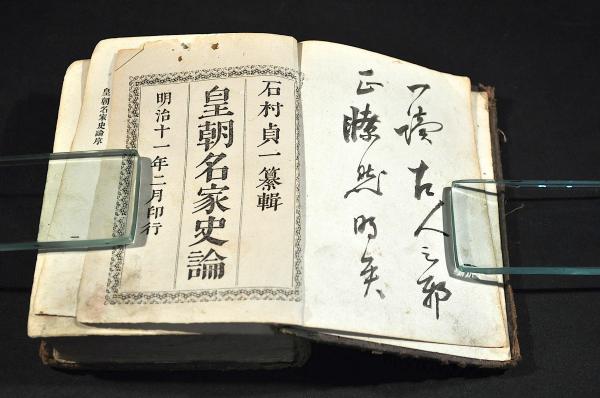 一讀古人之邪
正瞭然明矣
石村貞一纂輯
皇朝名家史論
明治十一年二月印行
皇朝名家史論序